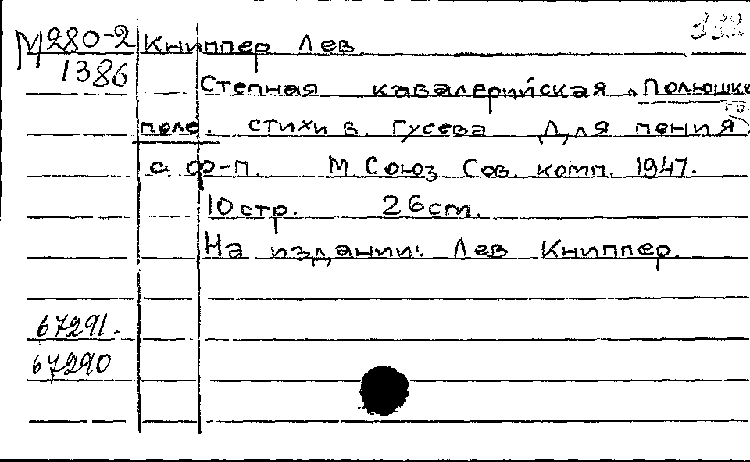 М 280-2 Книппер Лев 332
1386
Степная кавалерийская "Полюшко
поле. стихи В. Гусева Для пения
с ф-п. М Союз Сов. комп. 1947.
10 стр. 26 см.
На издании: Лев Книппер.
67291.
67290